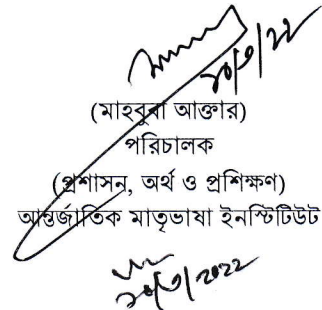 ২০/৩/২২
(মাহবুবা আক্তার)
পরিচালক
(প্রশাসন, অর্থ ও প্রশিক্ষণ)
আন্তর্জাতিক মাতৃভাষা ইনস্টিটিউট
২০/৩/২০২২